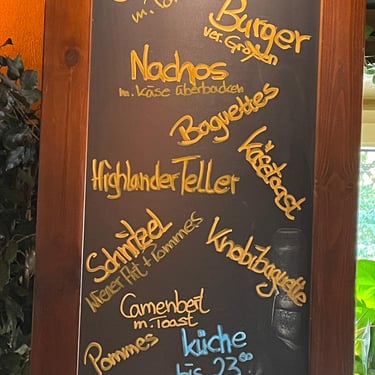 Burger
ver. Größen
Nachos
m. Käse überbacken
Baguettes
Käsetoast
Highlander Teller
Schnitzel
Wiener Art + Pommes
Knobibaguette
Camenbert
m. Toast
Pommes
küche
bis 23⁰⁰